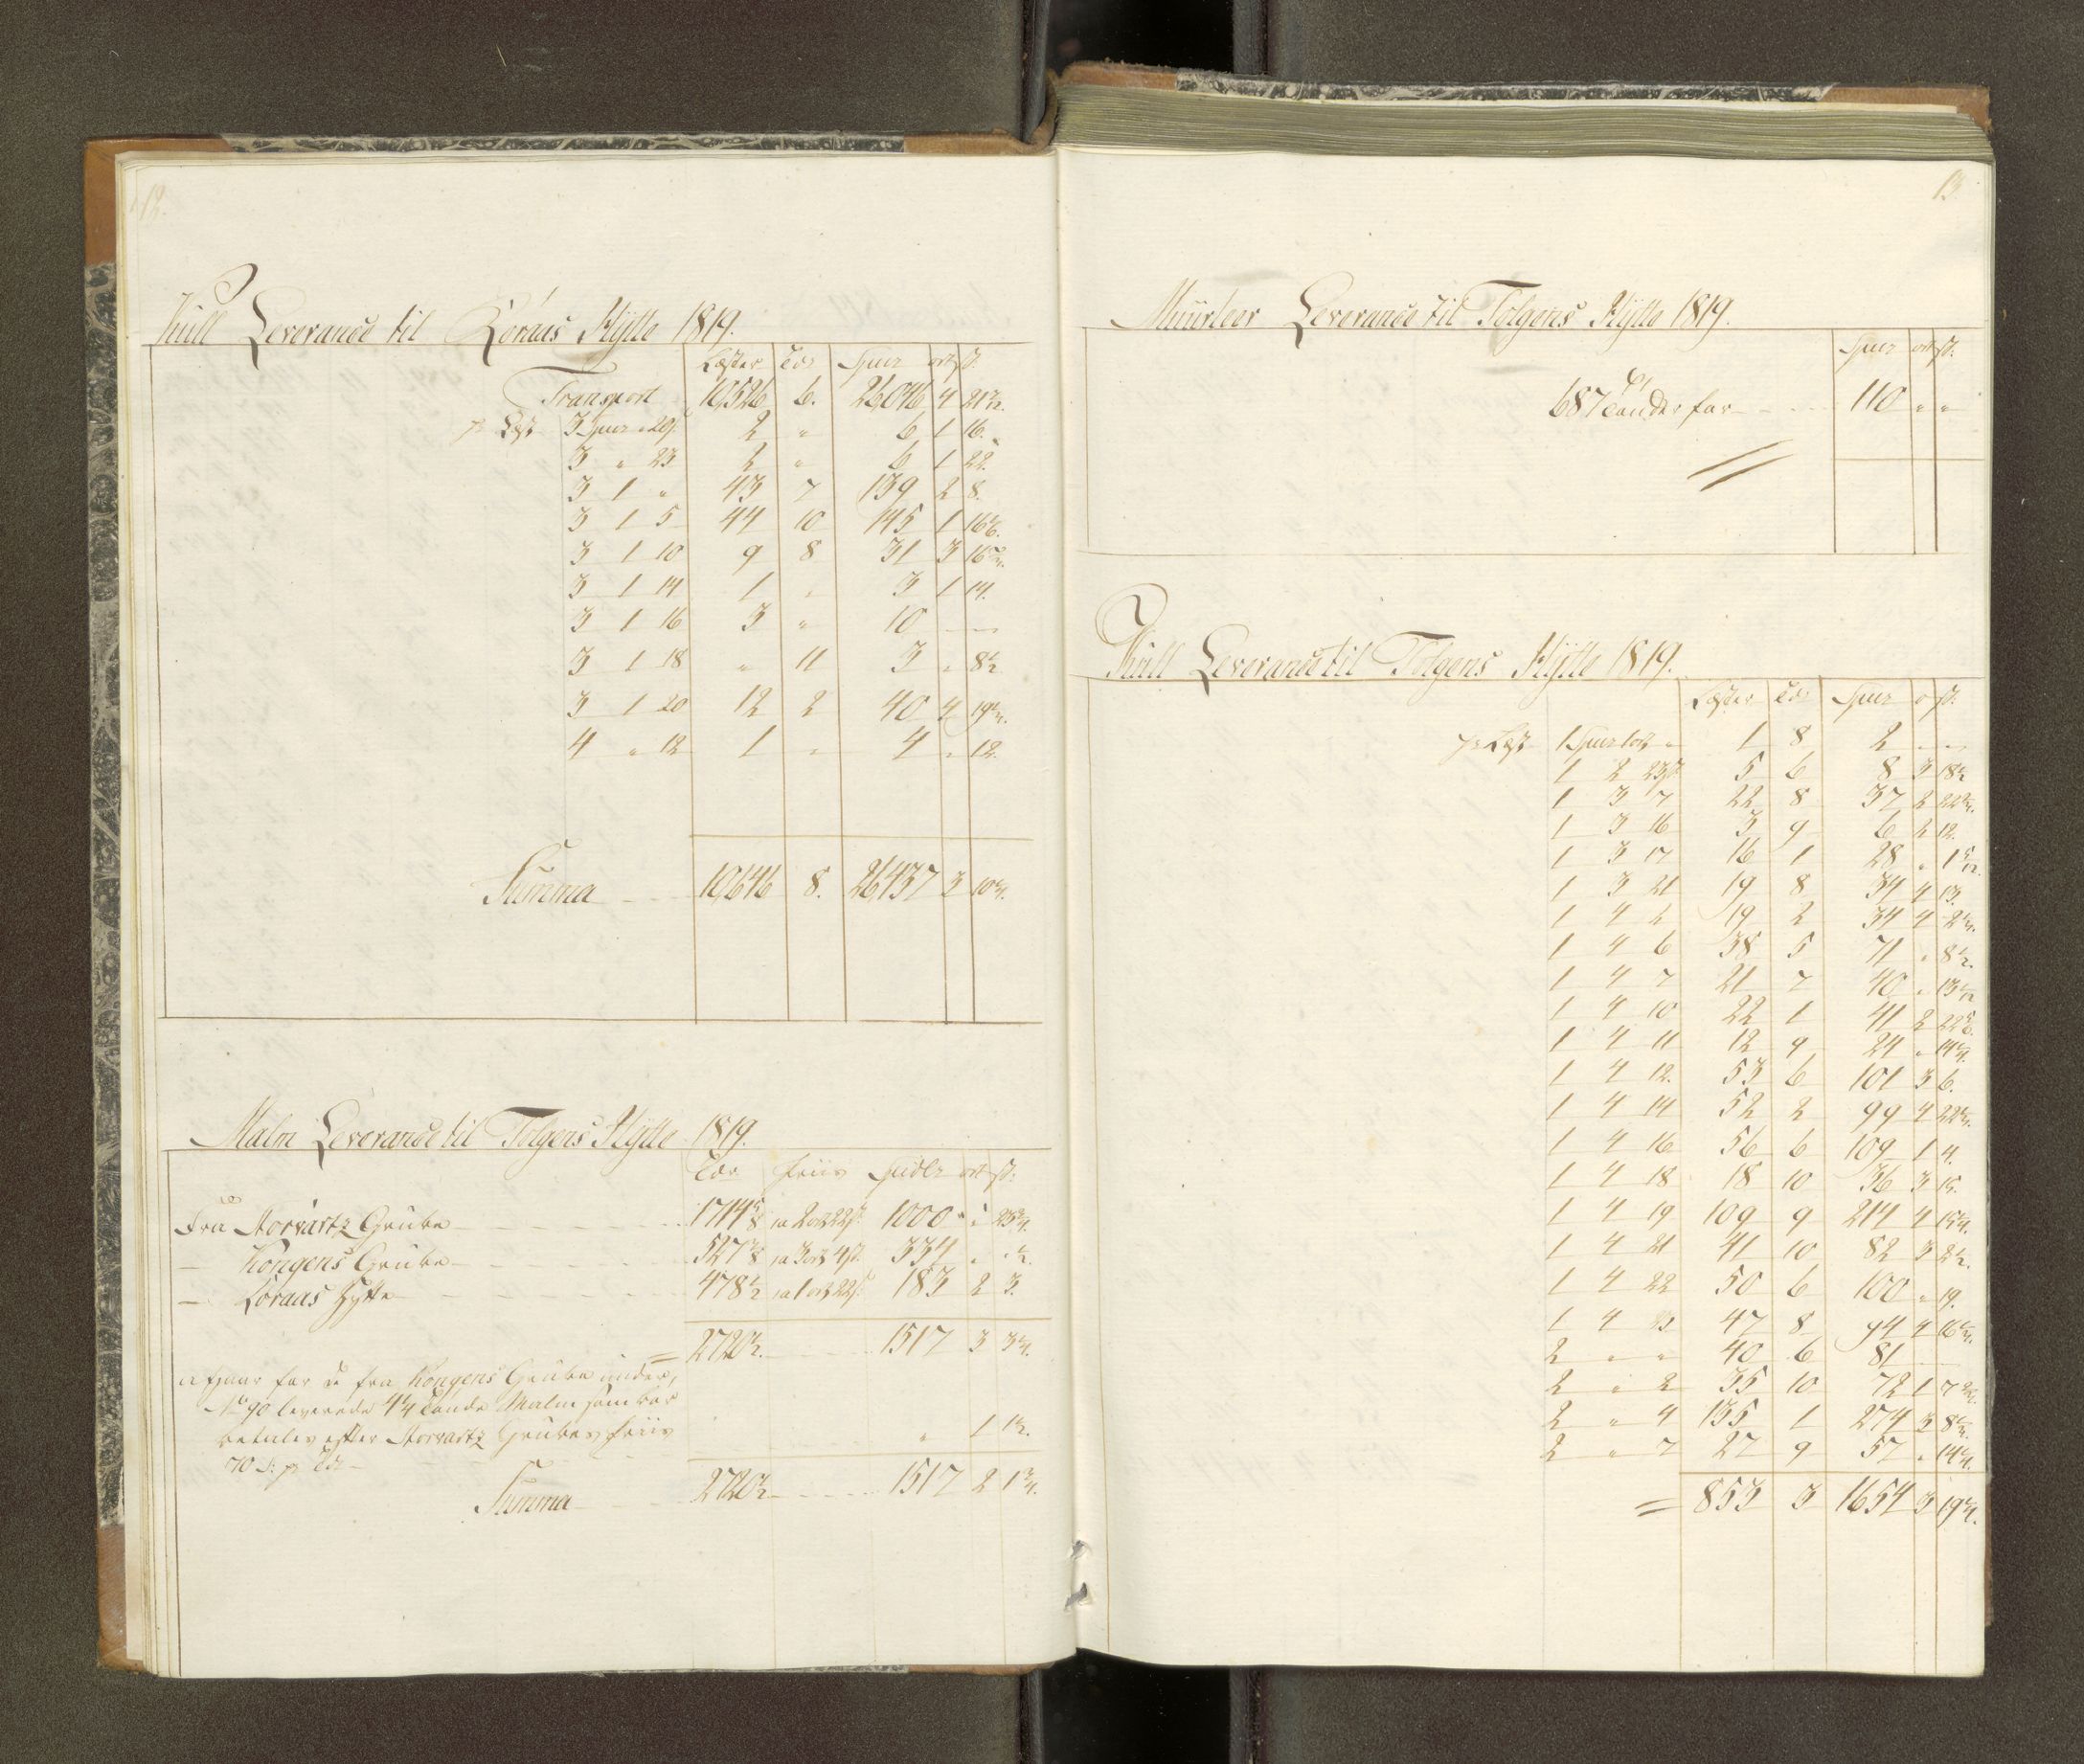 12.
Kull Leverance til Röraas Hÿtte 1819.
Læster Tdr Spd ort ſs:
Transport 10,526 6. 26,046 4 21 1/2.
pr Læst 3 Spd " 20 s: 2 " 6 1 16.
3 " 23 2 " 6 1 22.
3 1 " 43 7 139 2 8.
3 1 5 44 10 145 1 16 1/6.
3 1 10 9 8 31 3
3 1 14 1 " 3 1 14.
3 1 16 3 " 10
3 1 18 " 11 3 " 8 1/2
3 1 20 12 2 40 4
4 " 12 1 " 4 " 12.
Summa 10,646 8. 26,437 3
Malm Leverance til Tolgens Hÿtte 1819.
Tdr Priis Spdlr ort ſs:
Fra Storvartz Grube 1714 5/8 a 2 ort 22 s: 1000 "
— Kongens Grube 527 3/8 a 3 ort 4 s: 334 " " 1/2.
— Röraas Hytte 478 1/2 a 1 ort 22 s: 183 2 3.
2720 1/2. 1517 3 3 1/4.
afgaar for de fra Kongens Grube under
No 90 leverede 4 1/4 Tønde Malm som bør
betales efter Storvartz Grubes Priis
70 s: pr Td — " 1 1 1/2.
Summa 2720 1/2 1517 2 1 3/4.
13
Muurleer Leverance til Tolgens Hÿtte 1819.
Spd ort ſs:
687 Tønder for 110 " "
Kull Leverance til Tolgens Hÿtte 1819.
Læster Tdr Spd o ſs:
pr Læst 1 Spd 1 ort " 1 8 2 " "
1 2 23 s: 5 6 8 3 18 1/2
1 3 7 22 8 37 2
1 3 16 3 9 6 2 12.
1 3 17 16 1 28 " 1 5/12.
1 3 21 19 8 34 4 13.
1 4 2 19 2 34 4
1 4 6 38 5 71 " 8 1/2.
1 4 7 21 7 40 " 13 1/12
1 4 10 22 1 41 2 22 5/6.
1 4 11 12 9 24 " 14 1/4.
1 4 12. 53 6 101 3 6.
1 4 14 52 2 99 4
1 4 16 56 6 109 1 4.
1 4 18 18 10 36 3 15.
1 4 19 109 9 214 4 15 1/4.
1 4 21 41 10 82 3 2 1/2.
1 4 22 50 6 100 " 19.
1 4 23 47 8 94 4
2 " " 40 6 81
2 " 2 35 10 72 1
2 " 4 135 1 274 3
2 " 7 27 9 57 " 14 1/4.
853 3 1654 3 19 1/4.